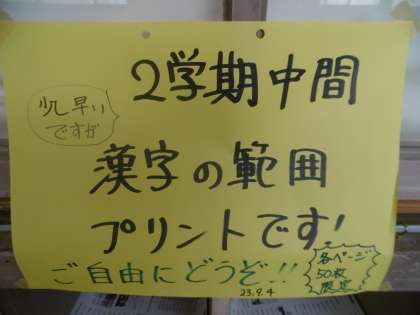 少し早い
ですが
2学期中間
漢字の範囲
プリントです!
ご自由にどうぞ!!
23.9.4
各ページ
50枚
限定